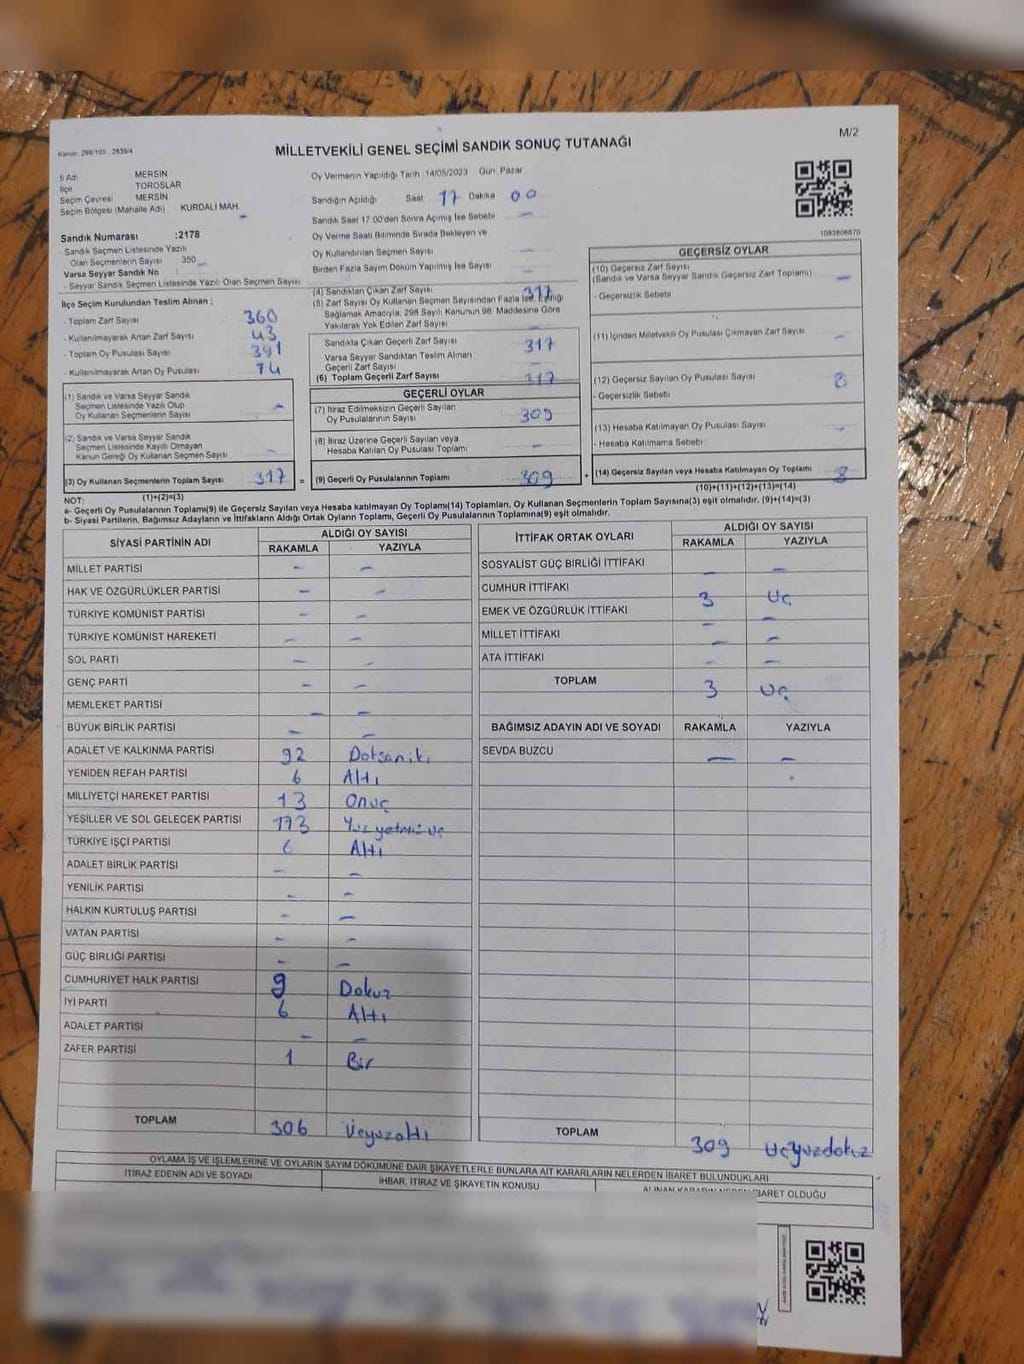 M/2
Kanun: 298/105 , 2839/4
MİLLETVEKİLİ GENEL SEÇİMİ SANDIK SONUÇ TUTANAĞI
İl Adı MERSİN
İlçe TOROSLAR
Seçim Çevresi MERSİN
Seçim Bölgesi (Mahalle Adı) KURDALİ MAH.
Oy Vermenin Yapıldığı Tarih :14/05/2023 Gün: Pazar
Sandığın Açıldığı Saat 17 Dakika 00
Sandık Saat 17.00'den Sonra Açılmış İse Sebebi -
Oy Verme Saati Bitiminde Sırada Bekleyen ve
Oy Kullandırılan Seçmen Sayısı -
Birden Fazla Sayım Döküm Yapılmış İse Sayısı -
1083606670
Sandık Numarası :2178
- Sandık Seçmen Listesinde Yazılı
Olan Seçmenlerin Sayısı 350
Varsa Seyyar Sandık No :
- Seyyar Sandık Seçmen Listesinde Yazılı Olan Seçmen Sayısı :
İlçe Seçim Kurulundan Teslim Alınan ;
- Toplam Zarf Sayısı 360
- Kullanılmayarak Artan Zarf Sayısı 43
- Toplam Oy Pusulası Sayısı 391
- Kullanılmayarak Artan Oy Pusulası 74
(1) Sandık ve Varsa Seyyar Sandık
Seçmen Listesinde Yazılı Olup
Oy Kullanan Seçmenlerin Sayısı -
(2) Sandık ve Varsa Seyyar Sandık
Seçmen Listesinde Kayıtlı Olmayan
Kanun Gereği Oy Kullanan Seçmen Sayısı -
(3) Oy Kullanan Seçmenlerin Toplam Sayısı 317 =
(1)+(2)=(3)
(4) Sandıktan Çıkan Zarf Sayısı 317
(5) Zarf Sayısı Oy Kullanan Seçmen Sayısından Fazla İse, Eşitliği
Sağlamak Amacıyla; 298 Sayılı Kanunun 98. Maddesine Göre
Yakılarak Yok Edilen Zarf Sayısı -
Sandıkta Çıkan Geçerli Zarf Sayısı 317
Varsa Seyyar Sandıktan Teslim Alınan
Geçerli Zarf Sayısı
(6) Toplam Geçerli Zarf Sayısı 317
GEÇERLİ OYLAR
(7) İtiraz Edilmeksizin Geçerli Sayılan
Oy Pusulalarının Sayısı 309
(8) İtiraz Üzerine Geçerli Sayılan veya
Hesaba Katılan Oy Pusulası Toplamı -
(9) Geçerli Oy Pusulalarının Toplamı 309 +
GEÇERSİZ OYLAR
(10) Geçersiz Zarf Sayısı
(Sandık ve Varsa Seyyar Sandık Geçersiz Zarf Toplamı) -
- Geçersizlik Sebebi
(11) İçinden Milletvekili Oy Pusulası Çıkmayan Zarf Sayısı -
(12) Geçersiz Sayılan Oy Pusulası Sayısı 8
- Geçersizlik Sebebi
(13) Hesaba Katılmayan Oy Pusulası Sayısı -
- Hesaba Katılmama Sebebi
(14) Geçersiz Sayılan veya Hesaba Katılmayan Oy Toplamı 8
(10)+(11)+(12)+(13)=(14)
NOT:
a- Geçerli Oy Pusulalarının Toplamı(9) ile Geçersiz Sayılan veya Hesaba Katılmayan Oy Toplamı(14) Toplamları, Oy Kullanan Seçmenlerin Toplam Sayısına(3) eşit olmalıdır. (9)+(14)=(3)
b- Siyasi Partilerin, Bağımsız Adayların ve İttifakların Aldığı Ortak Oyların Toplamı, Geçerli Oy Pusulalarının Toplamına(9) eşit olmalıdır.
SİYASİ PARTİNİN ADI ALDIĞI OY SAYISI
RAKAMLA YAZIYLA
MİLLET PARTİSİ - -
HAK VE ÖZGÜRLÜKLER PARTİSİ - -
TÜRKİYE KOMÜNİST PARTİSİ - -
TÜRKİYE KOMÜNİST HAREKETİ - -
SOL PARTİ - -
GENÇ PARTİ - -
MEMLEKET PARTİSİ - -
BÜYÜK BİRLİK PARTİSİ - -
ADALET VE KALKINMA PARTİSİ 92 Doksaniki
YENİDEN REFAH PARTİSİ 6 Altı
MİLLİYETÇİ HAREKET PARTİSİ 13 Onüç
YEŞİLLER VE SOL GELECEK PARTİSİ 173 Yüzyetmişüç
TÜRKİYE İŞÇİ PARTİSİ 6 Altı
ADALET BİRLİK PARTİSİ - -
YENİLİK PARTİSİ - -
HALKIN KURTULUŞ PARTİSİ - -
VATAN PARTİSİ - -
GÜÇ BİRLİĞİ PARTİSİ - -
CUMHURİYET HALK PARTİSİ 9 Dokuz
İYİ PARTİ 6 Altı
ADALET PARTİSİ - -
ZAFER PARTİSİ 1 Bir
TOPLAM 306 Üçyüzaltı
İTTİFAK ORTAK OYLARI ALDIĞI OY SAYISI
RAKAMLA YAZIYLA
SOSYALİST GÜÇ BİRLİĞİ İTTİFAKI - -
CUMHUR İTTİFAKI 3 Üç
EMEK VE ÖZGÜRLÜK İTTİFAKI - -
MİLLET İTTİFAKI - -
ATA İTTİFAKI - -
TOPLAM 3 Üç
BAĞIMSIZ ADAYIN ADI VE SOYADI RAKAMLA YAZIYLA
SEVDA BUZCU - -
TOPLAM 309 Üçyüzdokuz
OYLAMA İŞ VE İŞLEMLERİNE VE OYLARIN SAYIM DÖKÜMÜNE DAİR ŞİKAYETLERLE BUNLARA AİT KARARLARIN NELERDEN İBARET BULUNDUKLARI
İTİRAZ EDENİN ADI VE SOYADI İHBAR, İTİRAZ VE ŞİKAYETİN KONUSU ALINAN KARARIN NEDEN İBARET OLDUĞU